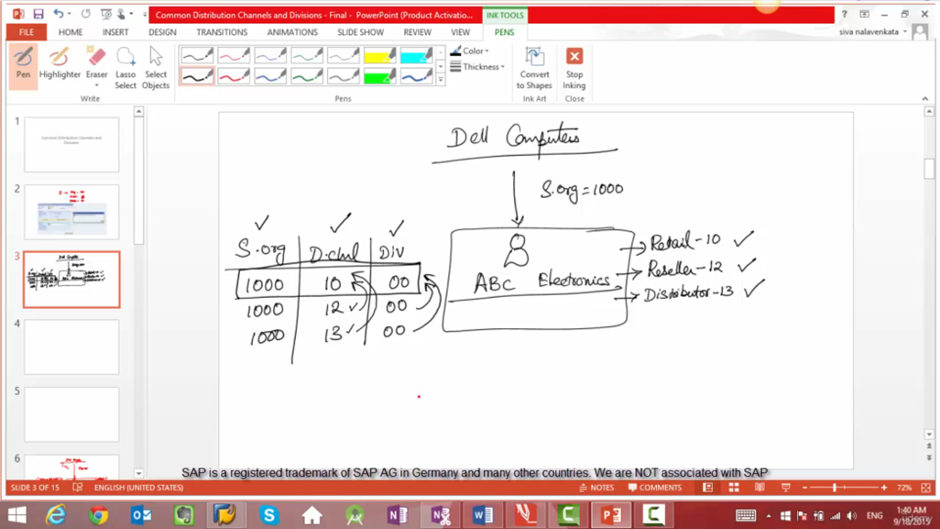 Common Distribution Channels and Divisions - Final - PowerPoint (Product Activatio...
INK TOOLS
FILE HOME INSERT DESIGN TRANSITIONS ANIMATIONS SLIDE SHOW REVIEW VIEW PENS
siva nalavenkata
Pen Highlighter Eraser Lasso Select Select Objects
Color
Thickness
Convert to Shapes
Stop Inking
Write Pens Ink Art Close
1
Common Distribution Channels and Divisions
2
3
4
5
6
Dell Computers
S.org=1000
S.org D.chnl Div
1000 10 00
1000 12 00
1000 13 00
ABC Electronics
Retail-10
Reseller-12
Distributor-13
SAP is a registered trademark of SAP AG in Germany and many other countries. We are NOT associated with SAP
SLIDE 3 OF 15 ENGLISH (UNITED STATES) NOTES COMMENTS 72%
ENG
1:40 AM
9/10/2019